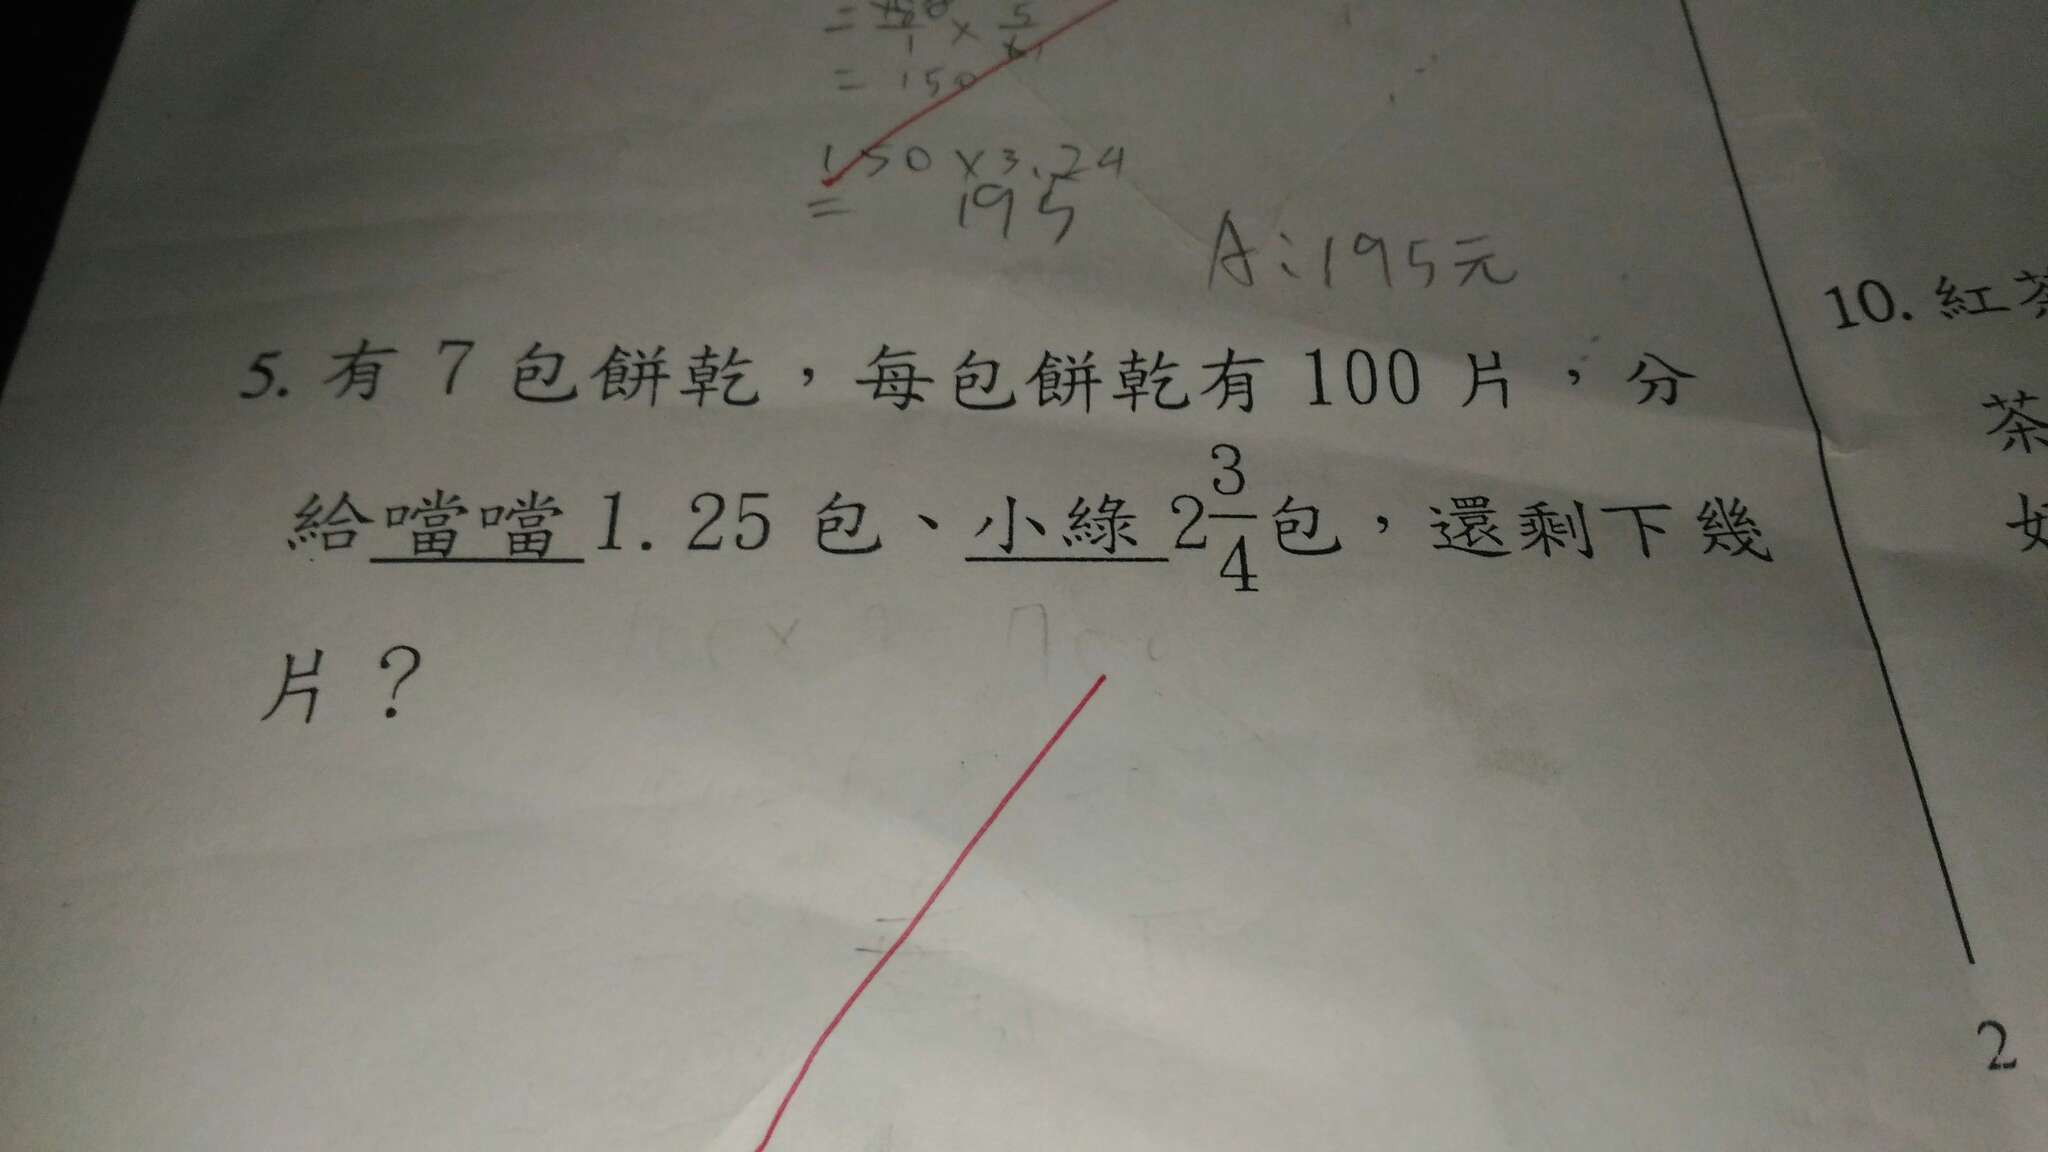 = 150
150 × 3.24
= 195
A:195元
5. 有 7 包餅乾，每包餅乾有 100 片，分
給噹噹1.25 包、小綠2 3/4包，還剩下幾
片？
10. 紅茶
茶
2